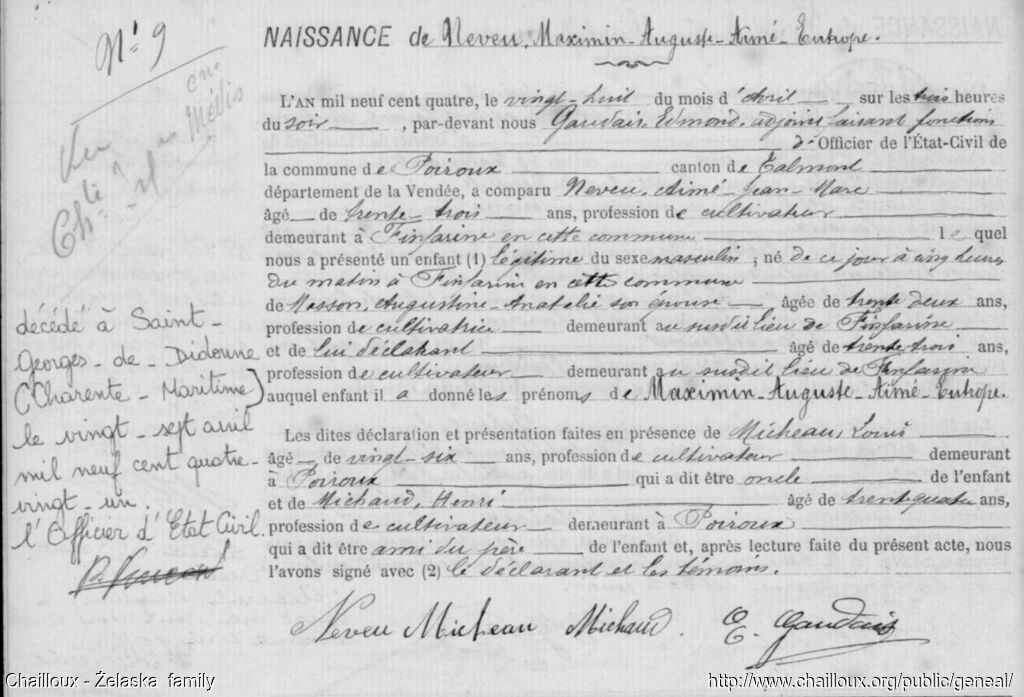 N° 9
NAISSANCE de Neveu, Maximin-Auguste-Aimé-Eutrope.
L'AN mil neuf cent quatre, le vingt-huit du mois d'Avril sur les trois heures
du soir, par-devant nous Gaudais, Edmond, adjoint faisant fonctions
d'Officier de l'État-Civil de
la commune de Poiroux canton de Talmont
département de la Vendée, a comparu Neveu, Aimé-Jean-Marc
âgé de trente-trois ans, profession de cultivateur
demeurant à Finfarine en cette commune lequel
nous a présenté un enfant (1) légitime du sexe masculin, né de ce jour à cinq heures
du matin à Finfarine en cette commune
de Masson, Augustine-Anatalie son épouse âgée de trente deux ans,
profession de cultivatrice demeurant au susdit lieu de Finfarine
et de lui déclarant âgé de trente trois ans,
profession de cultivateur demeurant au susdit lieu de Finfarine
auquel enfant il a donné les prénoms de Maximin-Auguste-Aimé-Eutrope.
Les dites déclaration et présentation faites en présence de Micheau, Louis
âgé de vingt-six ans, profession de cultivateur demeurant
à Poiroux qui a dit être oncle de l'enfant
et de Michaud, Henri âgé de trente quatre ans,
profession de cultivateur demeurant à Poiroux
qui a dit être ami du père de l'enfant et, après lecture faite du présent acte, nous
l'avons signé avec (2) le déclarant et les témoins.
Neveu Micheau Michaud. E. Gaudais
Médis
décédé à Saint-
Georges-de-Didonne
(Charente-Maritime)
le vingt-sept avril
mil neuf cent quatre-
vingt-un.
l'Officier d'Etat Civil.
Chailloux - Żelaska family
http://www.chailloux.org/public/geneal/